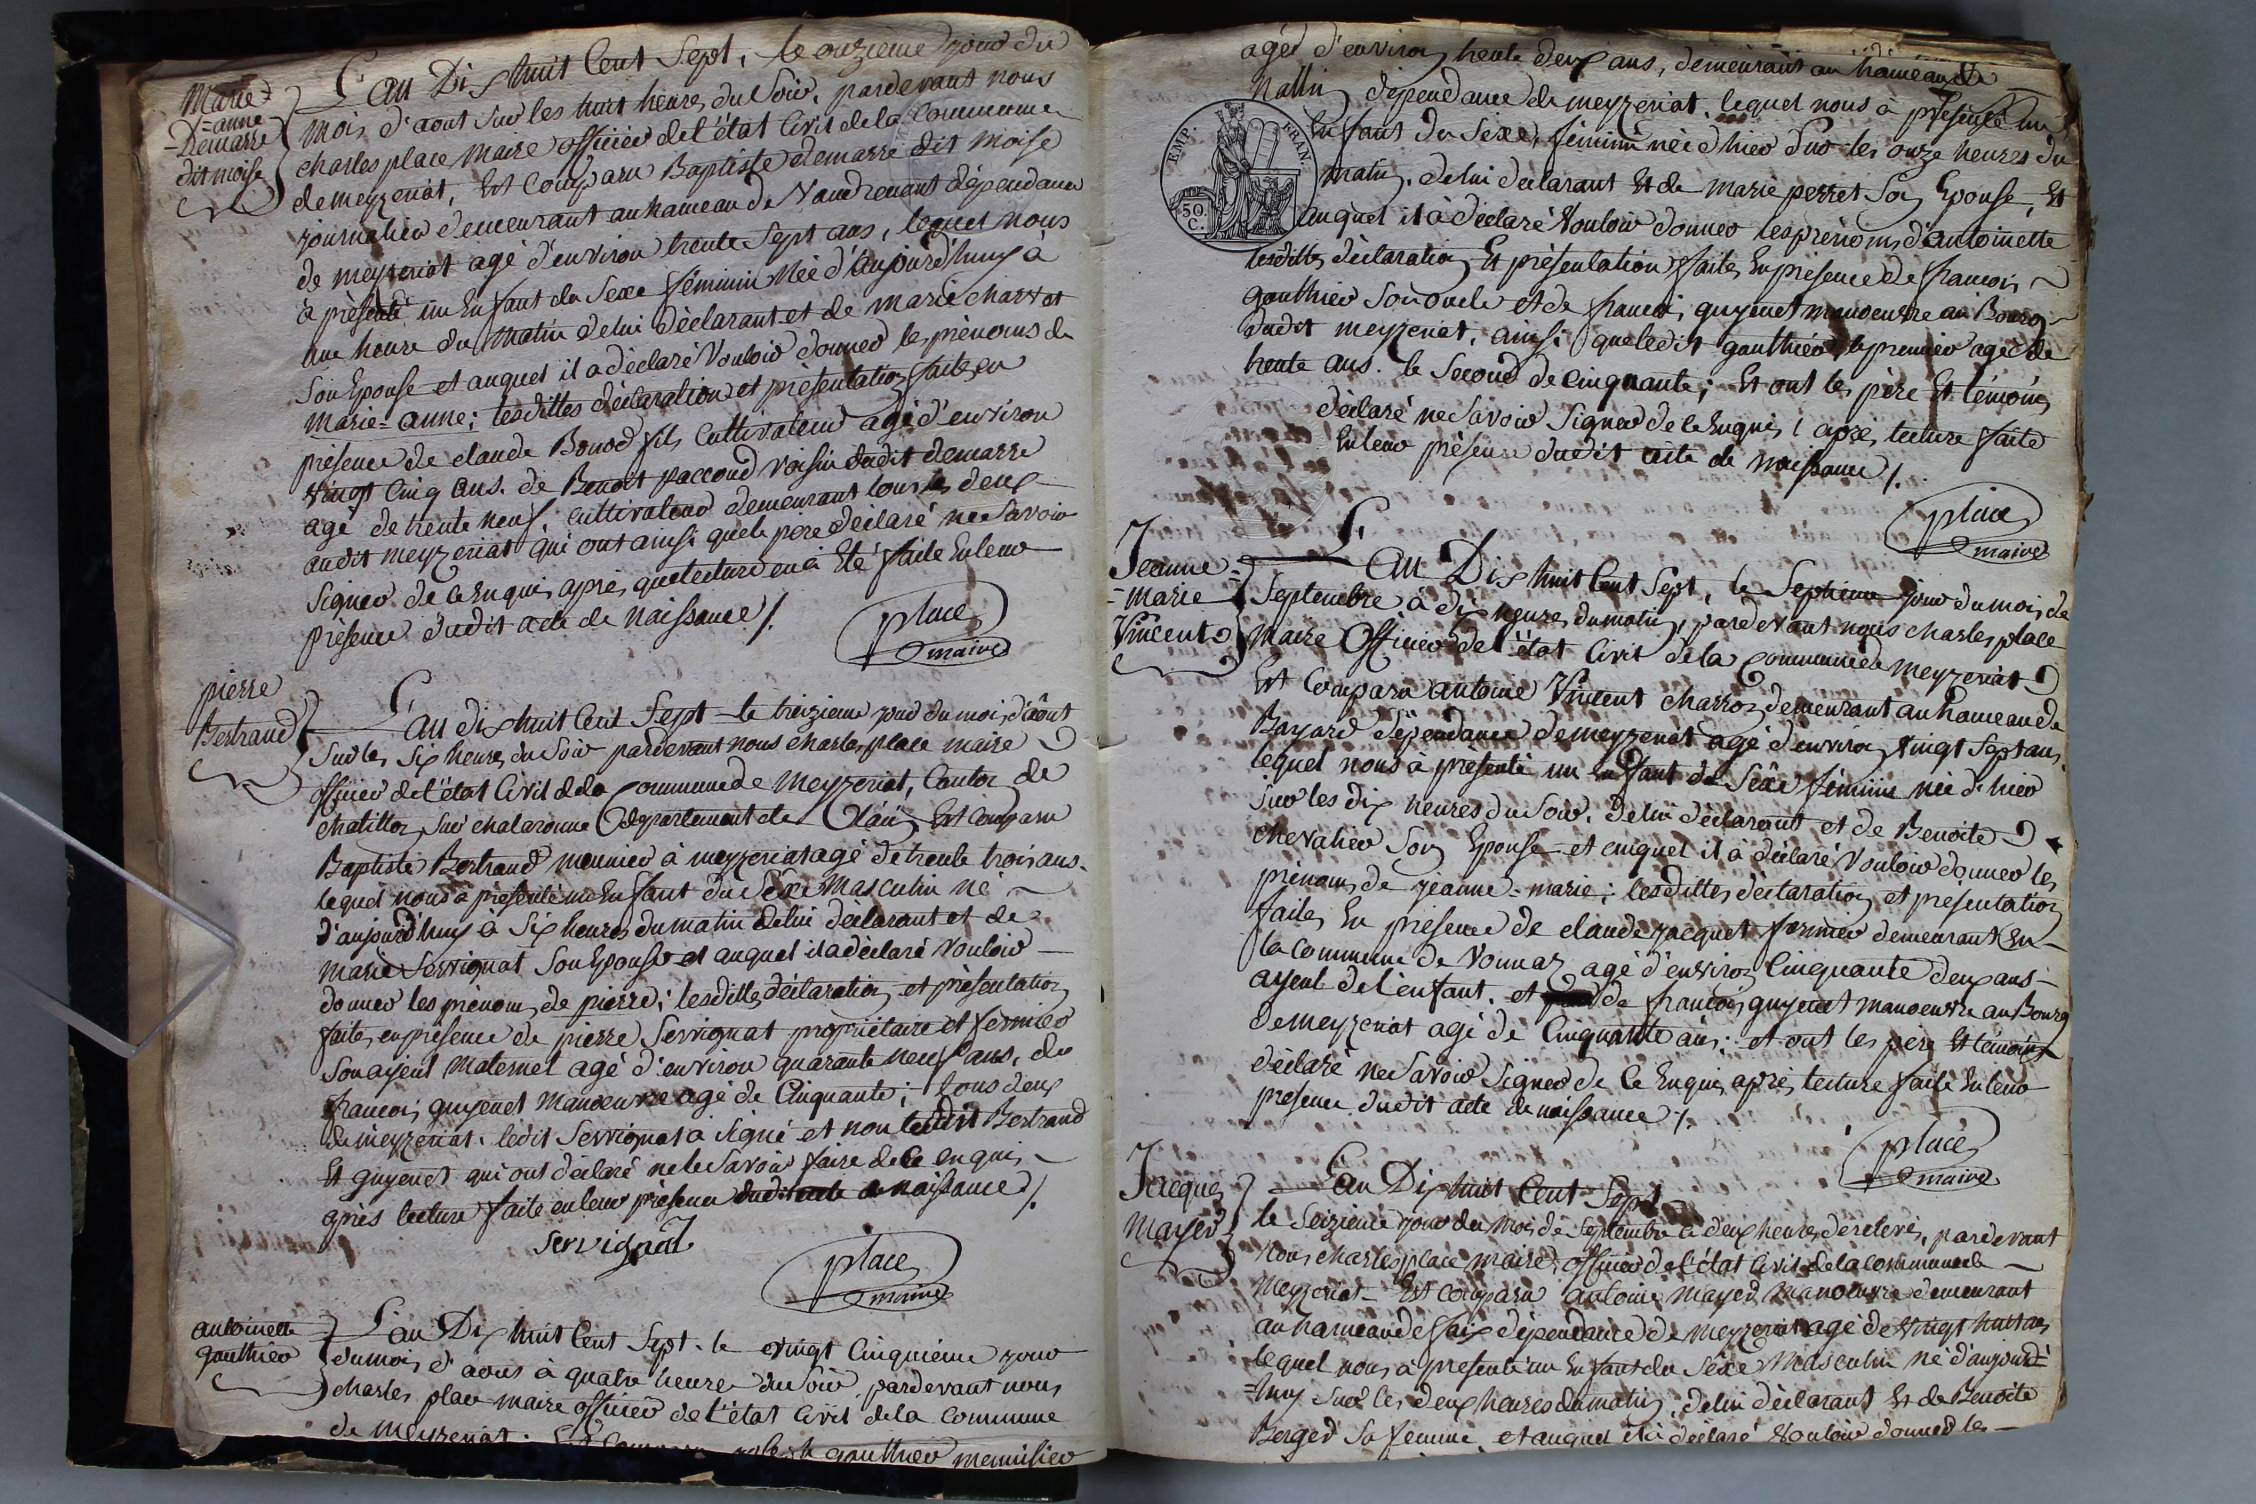 Marie=
=anne
=Demarre
dit moise
L'an Dix huit Cent Sept, le onzieme jour du
mois d'aout sur les huit heures du Soir, pardevant nous
charles place Maire officier de l'état Civil de la Commune
de meyzeriat, Est Comparu Baptiste demarre dit moise
journalier demeurant au hameau de Vaudrenant dépendance
de meyzeriat agé d'environ trente Sept ans, lequel nous
à présenté un Enfant du Sexe féminin Née d'aujourd'huy à
une heure du Matin de lui déclarant et de marie charvot
Son Epouse et auquel il a déclaré Vouloir donner les prénoms de
Marie=anne; lesdittes déclaration et présentation faites en
présence de claude Bonod fils Cultivateur agé d'environ
vingt Cinq ans. de Benoit paccoud voisin dudit demarre
agé de trente neuf, cultivateur demeurant tous les deux
audit meyzeriat qui ont ainsi que le pere déclaré ne Savoir
Signer de ce Enquis, après que lecture en à Eté faite En leur
présence dudit acte de Naissance /.
place
maire
pierre
Bertrand
L'an dix huit Cent Sept le treizieme jour du mois d'août
Sur les Six heures du Soir pardevant nous charles place maire
officier de l'état Civil de la Commune de Meyzeriat, Canton de
chatillon Sur chalaronne Département de L'ain, Est Comparu
Baptiste Bertrand meunier à meyzeriat agé de trente trois ans.
lequel nous à présenté un Enfant du Sexe Masculin né
d'aujourd'huy à Six heures du matin de lui déclarant et de
marie Servignat Son Epouse et auquel il a déclaré Vouloir
donner les prénoms de pierre; lesdittes déclaration et présentation
faites en présence de pierre Servignat propriétaire et fermier
Son ayeul Maternel agé d'environ quarante neuf ans, de
francois guyenet Manoeuvre agé de Cinquante; tous deux
de meyzeriat. ledit Servignat a Signé et non ledit Bertrand
Et guyenet qui ont déclaré ne le Savoir faire de ce enquis,
après lecture faite en leur présence dudit acte de naissance /.
Servignat
place
maire
antoinette
gauthier
L'an Dix huit Cent Sept. le vingt Cinquieme jour
du mois d'aout à quatre heures du Soir, pardevant nous
charles place maire officier de l'état Civil de la Commune
de meyzeriat. Est Comparu gauthier menuisier
agé d'environ trente deux ans, demeurant au hameau de
Nallin dépendance de meyzeriat. lequel nous à présenté un
Enfant du Sexe, féminin née d'hier Sur les onze heures du
matin. de lui declarant Et de Marie perret Son Epouse, Et
auquel il à déclaré Vouloir donner les prénoms d'antoinette
lesdittes déclaration Et présentation faites En présence de francois
gauthier Son oncle et de francois guyenet manoeuvre au Bourg
dudit meyzeriat, ainsi que ledit gauthier, le premier agé de
trente ans. le Second de Cinquante; Et ont les père Et témoins
déclaré ne Savoir Signer de ce Enquis, après lecture faite
En leur présence dudit acte de naissance /.
EMP. FRAN.
50.
C.
place
maire
Jeanne=
=marie
Vincent
L'an Dix huit Cent Sept, le Septieme jour du mois de
Septembre à dix heures du matin, pardevant nous charles place
Maire Officier de l'état Civil de la Commune de meyzeriat
Est Comparu antoine Vincent charron demeurant au hameau de
Bayard dépendance de meyzeriat agé d'environ vingt Sept ans,
lequel nous à présenté un Enfant du Sexe féminin née d'hier
Sur les dix heures du Soir. de lui déclarant et de Benoite
chevalier Son Epouse et auquel il à déclaré Vouloir donner les
prénoms de jeanne=marie; lesdittes déclaration et présentation
faites En présence de claude jacquet fermier demeurant En
la commune de Vonnaz agé d'environ Cinquante deux ans
ayeul de l'enfant. et de francois guyenet manoeuvre au Bourg
de meyzeriat agé de Cinquante ans; et ont les pere Et témoins
déclaré ne Savoir Signer de Ce Enquis, après lecture faite En leur
presence dudit acte de naissance /.
place
maire
Jacques
mayer
L'an Dix huit Cent Sept
le Seizieme jour du mois de Septembre à deux heures de relevée, pardevant
nous charles place maire officier de l'état Civil de la commune de
Meyzeriat Est comparu antoine mayer Manoeuvre demeurant
au hameau de faix dépendance de Meyzeriat agé de vingt huit ans
lequel nous à présenté un Enfant du Sexe Masculin né d'aujourd=
=huy Sur les deux heures du matin, de lui déclarant Et de Benoite
Berger Sa femme, et auquel il à déclaré Vouloir donner les